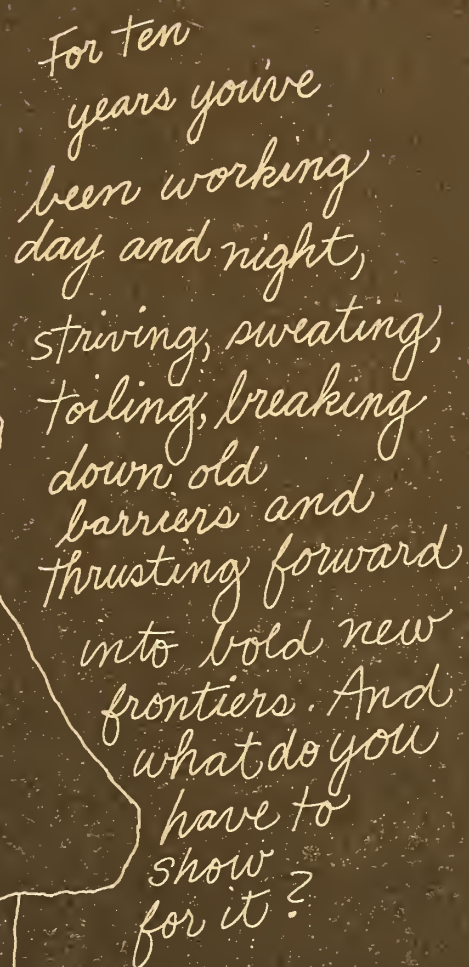 For ten
years you've
been working
day and night,
striving, sweating,
toiling, breaking
down old
barriers and
thrusting forward
into bold new
frontiers. And
what do you
have to
show
for it?